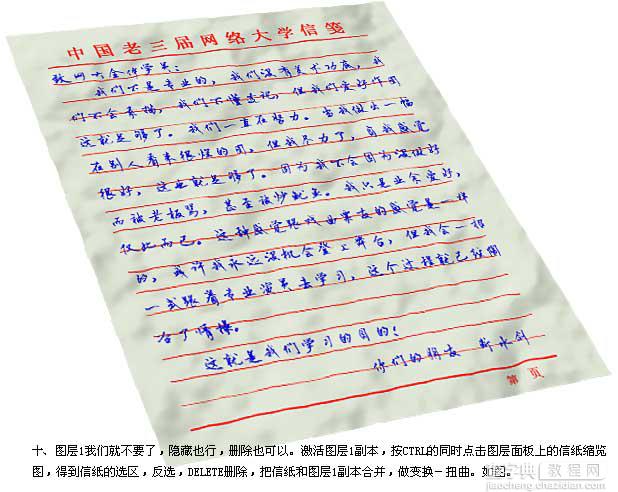 中国老三届网络大学信笺
致网大全体学员：
我们不是专业的，我们没有美术功底，我
们不会素描，我们不懂速记，但我们爱好作图
这就足够了。我们一直在努力。当我做出一幅
在别人看来很怪的图，但我尽力了，自我感觉
很好，这也就足够了。因为我不会因为没做好
而被老板骂，甚至被炒鱿鱼。我只是业余爱好，
仅此而已。这种感觉跟戏曲票友的感觉是一样
的，或许我永远没机会登上舞台，但我会一招
一式跟着专业演员去学习，这个过程就已经陶
冶了情操。
这就是我们学习的目的！
你们的朋友 新水剑
第 页
十、图层1我们就不要了，隐藏也行，删除也可以。激活图层1副本，按CTRL的同时点击图层面板上的信纸缩览
图，得到信纸的选区，反选，DELETE删除，把信纸和图层1副本合并，做变换－扭曲。如图。
查字典 教程网
jiaocheng.chazidian.com